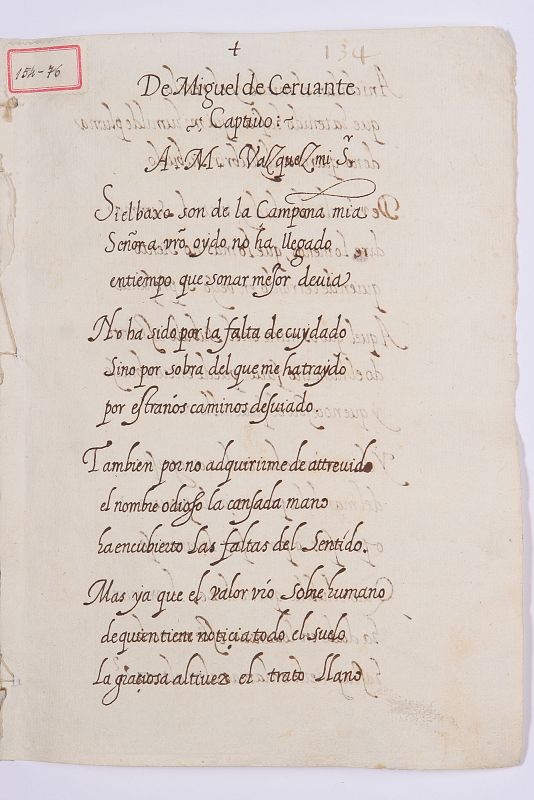 154-76
134
De Miguel de Ceruante
Captiuo:~
A. M. Vazquez mi Sr
Si el baxo son de la Campona mia
Señor a vrō oydo no ha llegado
en tiempo que sonar mejor deuia
No ha sido por la falta de cuydado
Sino por sobra del que me ha traydo
por estraños caminos desuiado.
Tambien por no adquirirme de attreuido
el nombre odioso la cansada mano
ha encubierto las faltas del Sentido.
Mas ya que el valor vrō sobre humano
de quien tiene noticia todo el suelo
la graciosa altiuez el trato llano